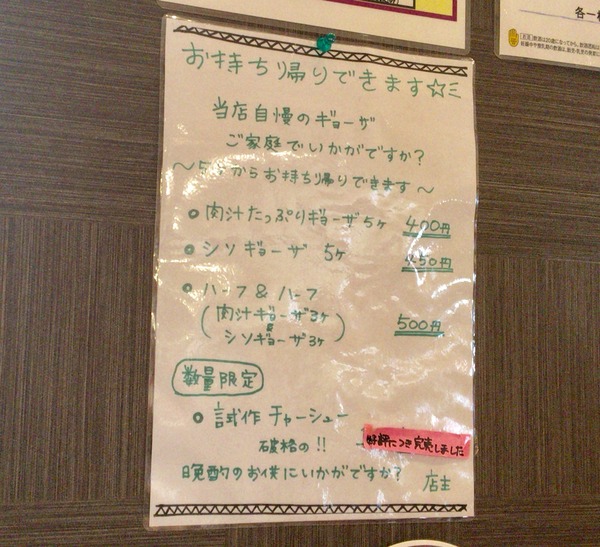 お持ち帰りできます☆ミ
当店自慢のギョーザ
ご家庭でいかがですか?
～5ヶからお持ち帰りできます～
肉汁たっぷりギョーザ5ヶ 400円
シソギョーザ 5ヶ 450円
ハーフ&ハーフ 500円
(肉汁ギョーザ3ヶ
シソギョーザ3ヶ)
数量限定
試作チャーシュー
破格の!!
好評につき完売しました
晩酌のお供にいかがですか? 店主
各一